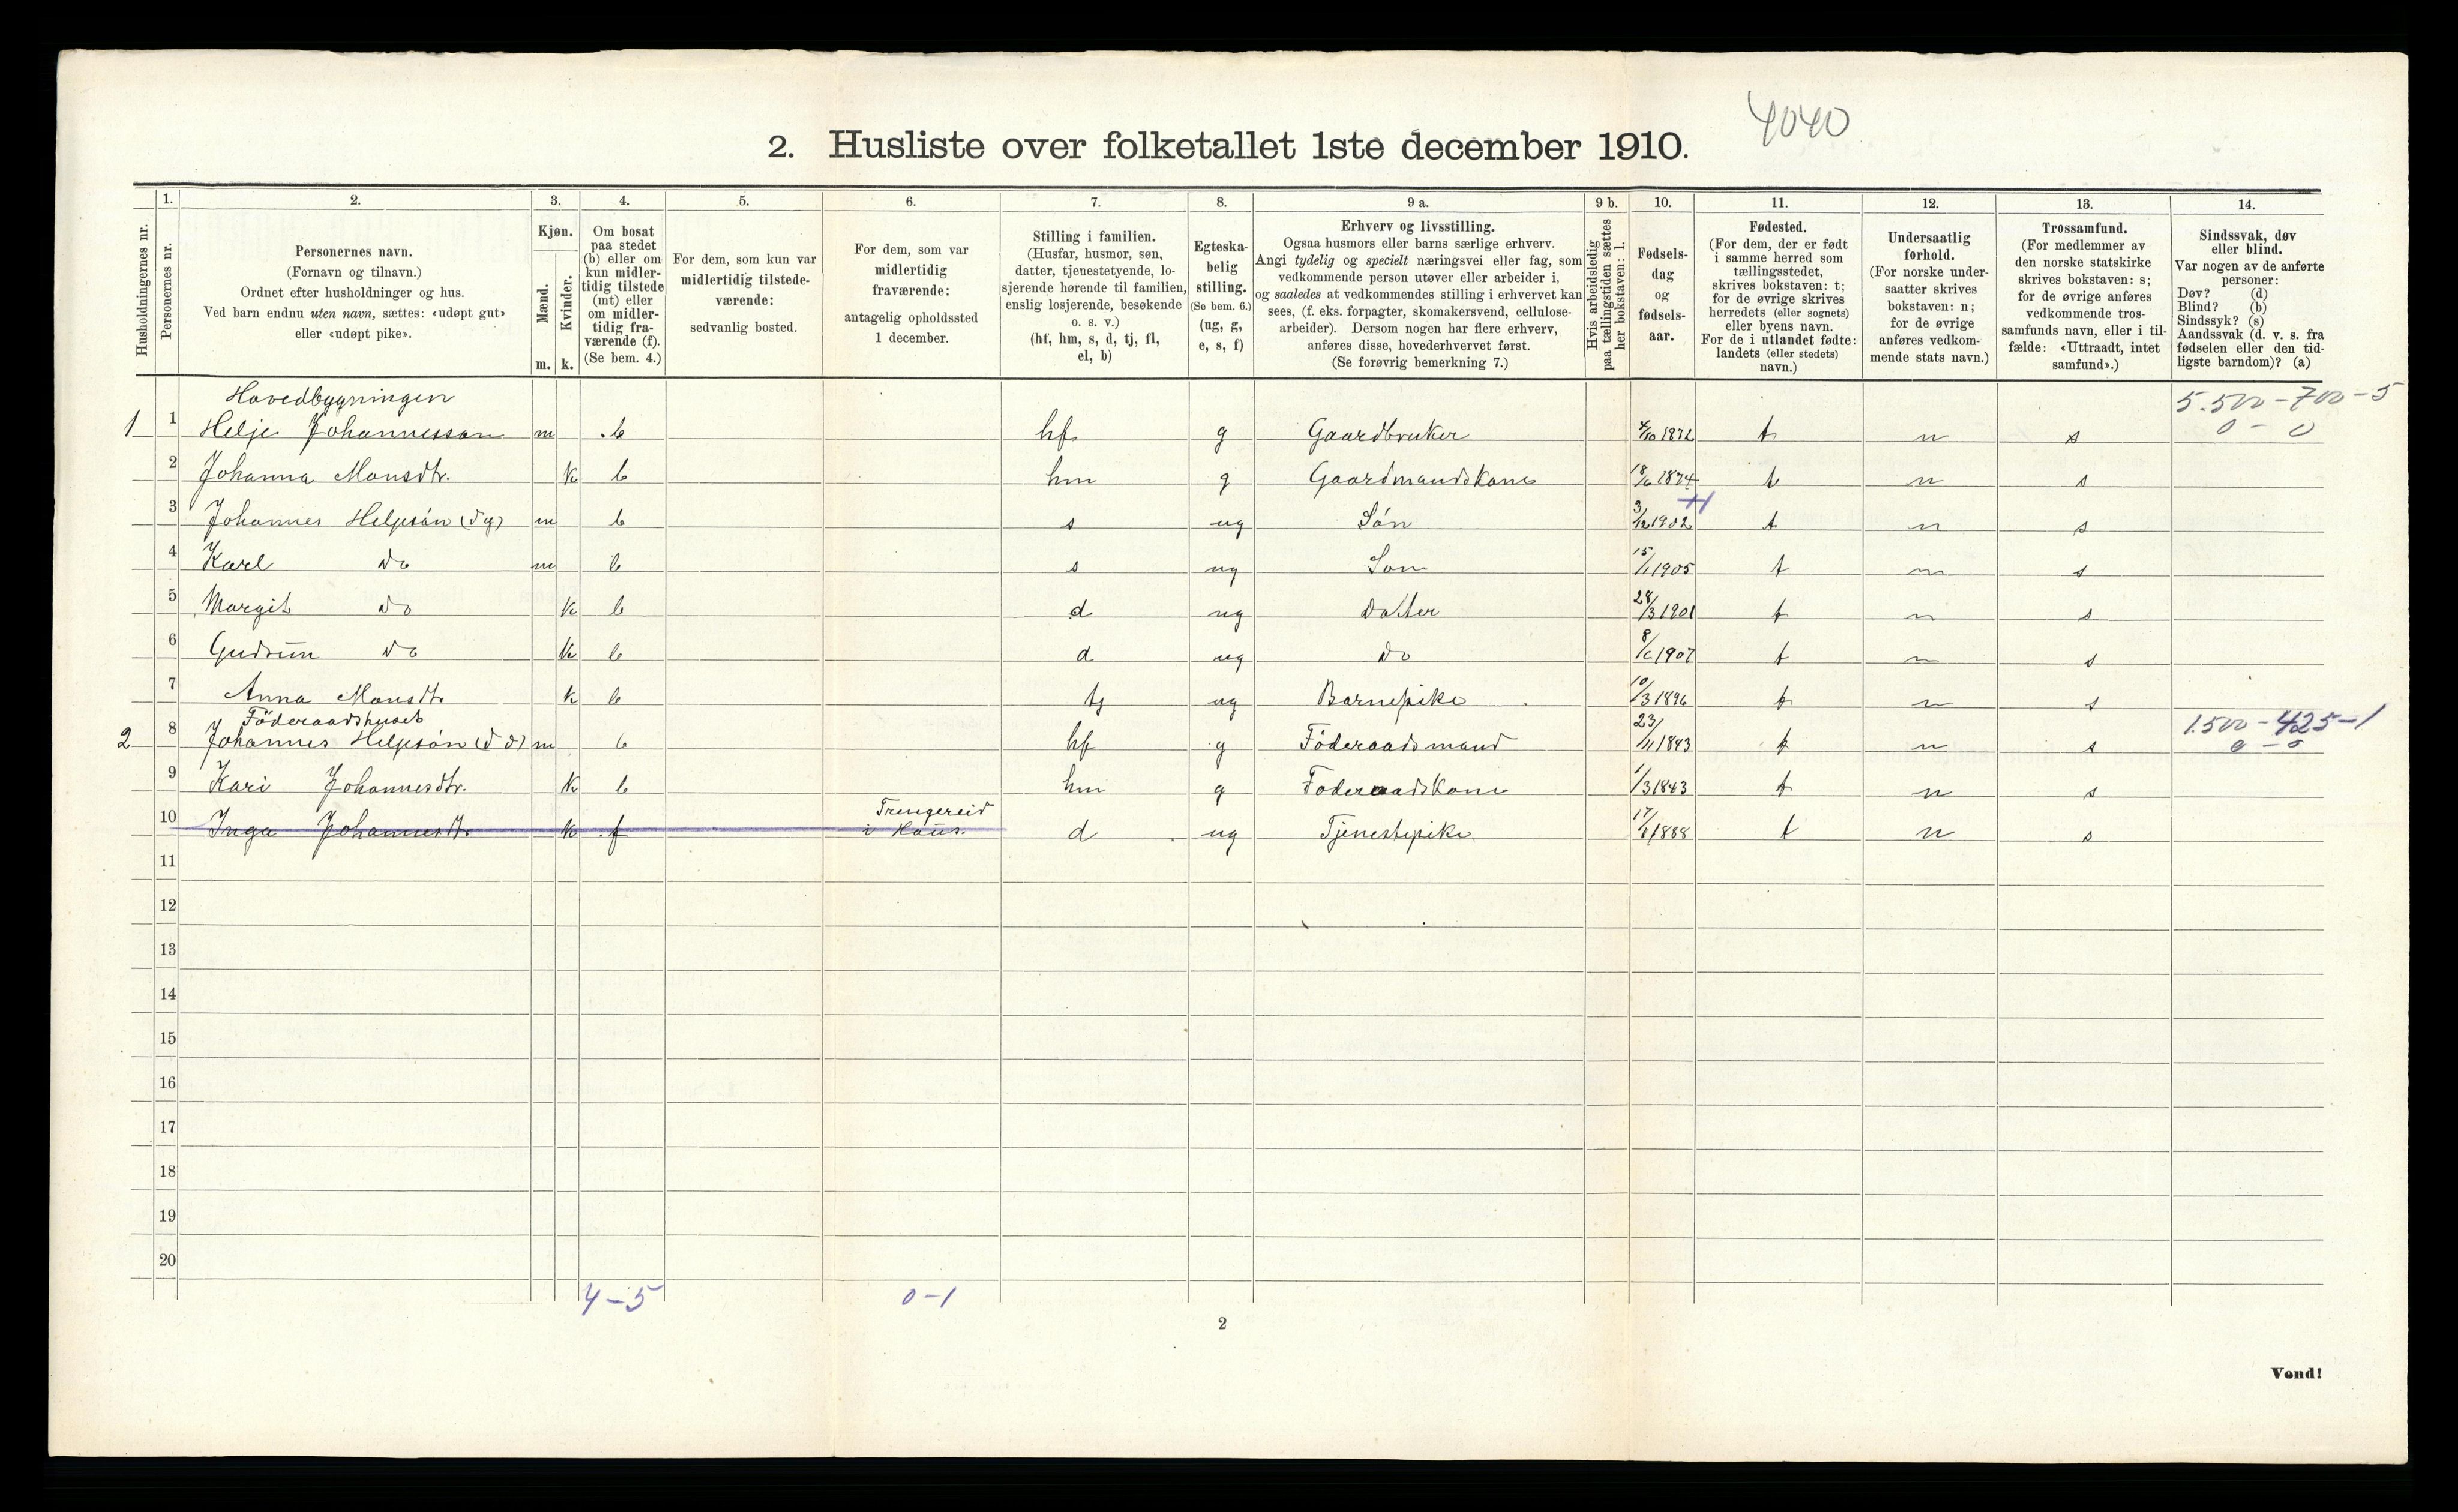 4040
2. Husliste over folketallet 1ste december 1910.
1. 2. 3. 4. 5. 6. 7. 8. 9 a. 9 b. 10. 11. 12. 13. 14.
Husholdningernes nr.
Personernes nr.
Personernes navn.
(Fornavn og tilnavn.)
Ordnet efter husholdninger og hus.
Ved barn endnu uten navn, sættes: «udøpt gut»
eller «udøpt pike».
Kjøn.
Mænd.
Kvinder.
m. k.
Om bosat
paa stedet
(b) eller om
kun midler-
tidig tilstede
(mt) eller
om midler-
tidig fra-
værende (f).
(Se bem. 4.)
For dem, som kun var
midlertidig tilstede-
værende:
sedvanlig bosted.
For dem, som var
midlertidig
fraværende:
antagelig opholdssted
1 december.
Stilling i familien.
(Husfar, husmor, søn,
datter, tjenestetyende, lo-
sjerende hørende til familien,
enslig losjerende, besøkende
o. s. v.)
(hf, hm, s, d, tj, fl,
el, b)
Egteska-
belig
stilling.
(Se bem. 6.)
(ug, g,
e, s, f)
Erhverv og livsstilling.
Ogsaa husmors eller barns særlige erhverv.
Angi tydelig og specielt næringsvei eller fag, som
vedkommende person utøver eller arbeider i,
og saaledes at vedkommendes stilling i erhvervet kan
sees, (f. eks. forpagter, skomakersvend, cellulose-
arbeider). Dersom nogen har flere erhverv,
anføres disse, hovederhvervet først.
(Se forøvrig bemerkning 7.)
Hvis arbeidsledig
paa tællingstiden sættes
her bokstaven: l.
Fødsels-
dag
og
fødsels-
aar.
Fødested.
(For dem, der er født
i samme herred som
tællingsstedet,
skrives bokstaven: t;
for de øvrige skrives
herredets (eller sognets)
eller byens navn.
For de i utlandet fødte:
landets (eller stedets)
navn.)
Undersaatlig
forhold.
(For norske under-
saatter skrives
bokstaven: n;
for de øvrige
anføres vedkom-
mende stats navn.)
Trossamfund.
(For medlemmer av
den norske statskirke
skrives bokstaven: s;
for de øvrige anføres
vedkommende tros-
samfunds navn, eller i til-
fælde: «Uttraadt, intet
samfund».)
Sindssvak, døv
eller blind.
Var nogen av de anførte
personer:
Døv? (d)
Blind? (b)
Sindssyk? (s)
Aandssvak (d. v. s. fra
fødselen eller den tid-
ligste barndom)? (a)
Hovedbygningen 5.500-700-5
1 1 Helje Johannesson m b hf g Gaardbruker 4/10 1872 t n s 0-0
2 Johanna Monsdtr. k b hm g Gaardmandskone 18/6 1874 t n s
3 Johannes Heljesön (dy) m b s ug Sön 3/12 1902 t n s
4 Karl do m b s ug Son 15/1 1905 t n s
5 Margit do k b d ug Datter 28/3 1901 t n s
6 Gudrun do k b d ug do 8/6 1907 t n s
7 Anna Monsdtr k b tj ug Barnepike 10/3 1896 t n s
Föderaadshuset 1.500-425-1
2 8 Johannes Heljesön (d d) m b hf g Föderaadsmand 23/11 1843 t n s 0-0
9 Kari Johannesdtr. k b hm g Foderaadskone 1/3 1843 t n s
Trengereid
10 Inga Johannesdtr. k f i Haus. d ug Tjenestepike 17/1 1888 t n s
11
12
13
14
15
16
17
18
19
20
4-5 0-1
2
Vend!